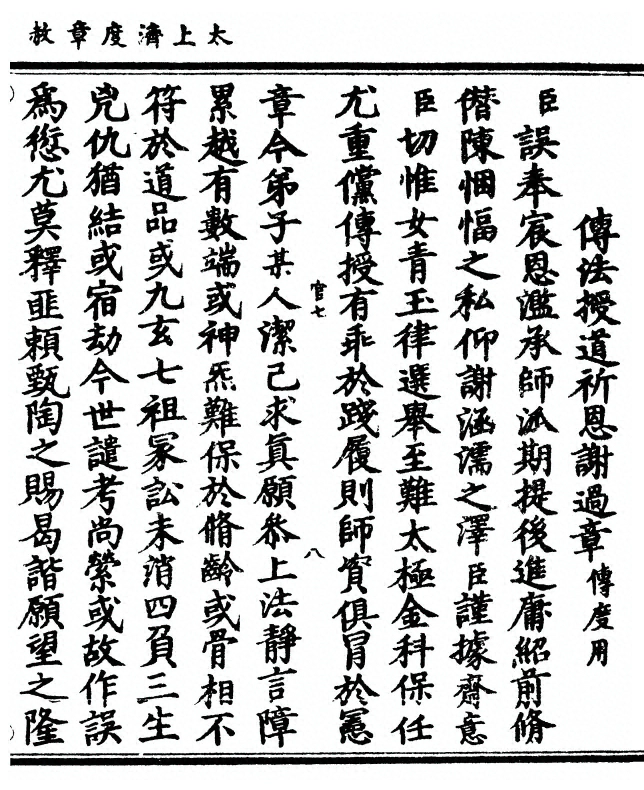 太上濟度章赦
傳法授道祈恩謝過章傳度用
臣誤奉宸恩濫承師派期提後進庸紹前脩
僭陳悃愊之私仰謝涵濡之澤臣謹據齋意
臣切惟女青玉律選舉至難太極金科保任
尤重儻傳授有乖於踐履則師資俱冒於憲
官七
八
章今弟子某人潔己求真願叅上法靜言障
累越有數端或神炁難保於脩齡或骨相不
符於道品或九玄七祖冢訟未消四負三生
兇仇猶結或宿劫今世譴考尚縈或故作誤
為愆尤莫釋匪頼甄陶之賜曷諧願望之隆